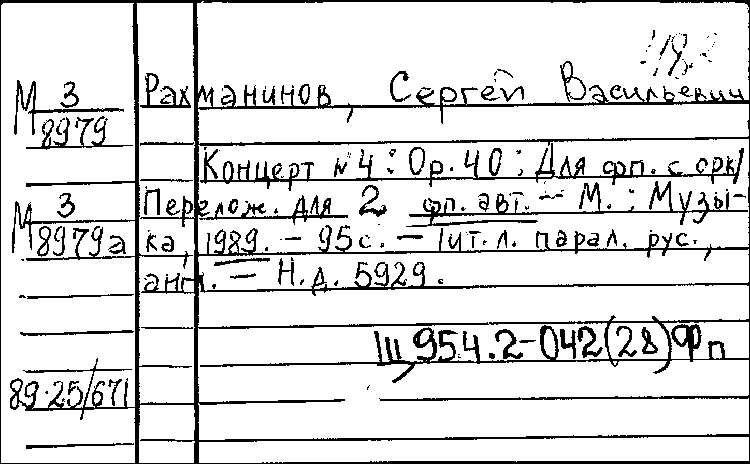 М 3
8979
Рахманинов, Сергей Васильевич
Концерт №4 : Op. 40 : Для фп. с орк/
М 3
8979а
Перелож. для 2 фп. авт. – М. : Музы-
ка, 1989. – 95 с. – Тит. л. парал. рус.,
англ. – Н.д. 5929.
Щ954.2-042(28)Фп
89-25/671